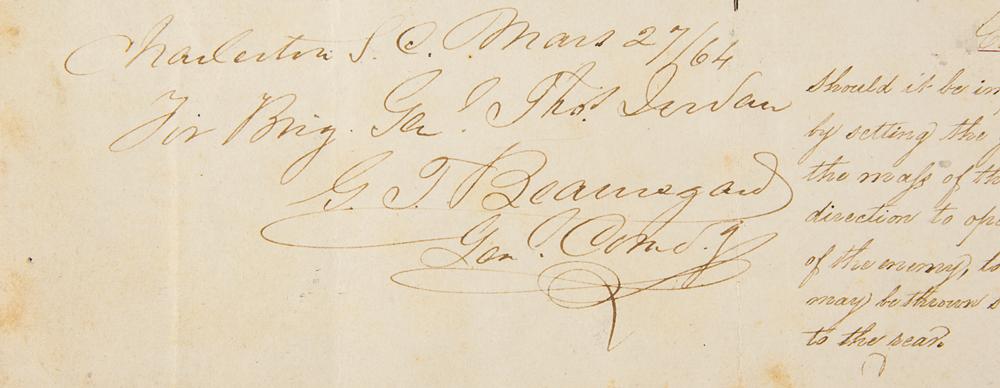 Charleston S. C. Mars 27/64
For Brig. Genl. Thos. Jordan
G. T. Beauregard
Genl. Comdg
should it be
by setting the
the mass of
direction to
of the enemy,
may be thrown
to the rear.